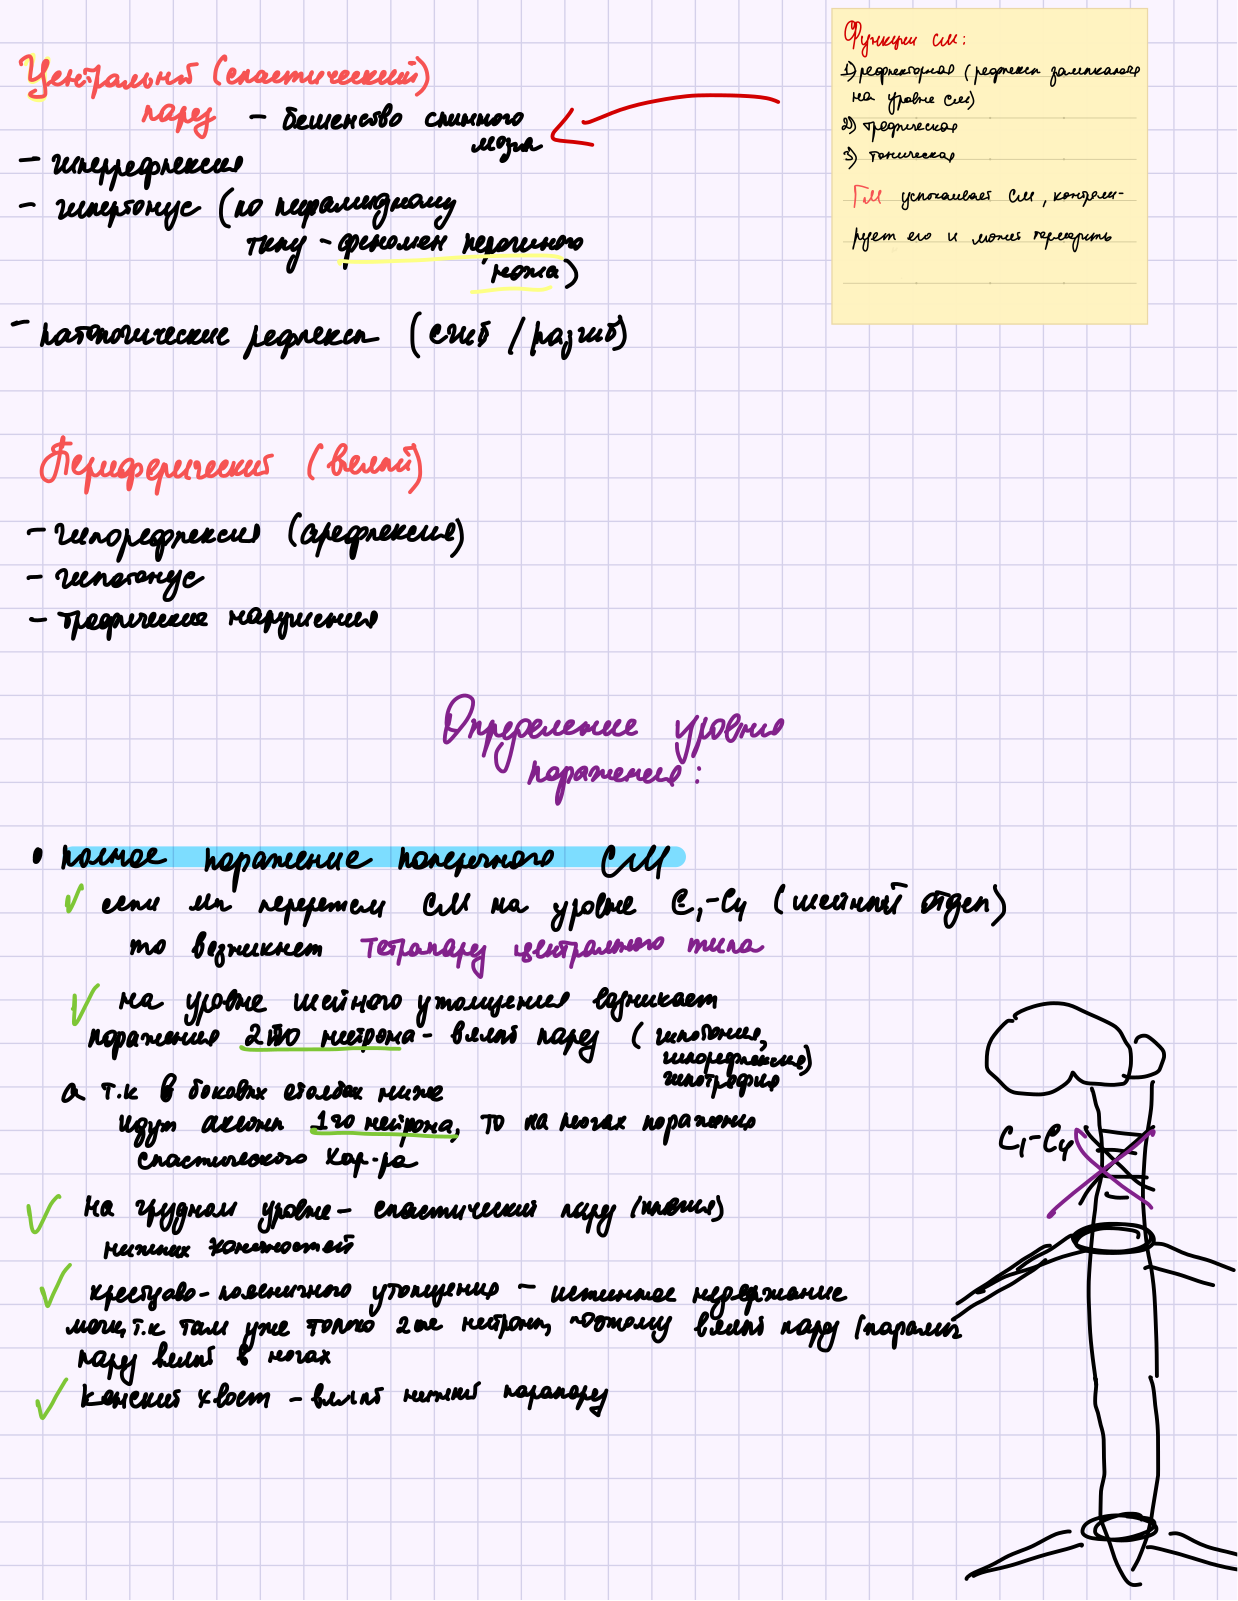 Центральный (спастический)
парез – бешенство спинного
мозга
– гиперрефлексия
– гипертонус (по пирамидному
типу – феномен перочинного
ножа)
– патологические рефлексы (сгиб / разгиб)
Функции СМ:
1) рефлекторная (рефлексы замыкаются
на уровне СМ)
2) трофическая
3) тоническая
ГМ успокаивает СМ, контроли-
рует его и может тормозить
Периферический (вялый)
– гипорефлексия (арефлексия)
– гипотонус
– трофические нарушения
Определение уровня
поражения:
• полное поражение поперечного СМ
✓ если мы перережем СМ на уровне C1-C4 (шейный отдел)
то возникнет тетрапарез центрального типа
✓ на уровне шейного утолщения возникает
поражения 2го нейрона – вялый парез (гипотония,
гипорефлексия)
гипотрофия
а т.к в боковых столбах ниже
идут аксоны 1го нейрона, то на ногах поражения
спастического хар-ра
✓ На грудном уровне – спастический парез (плегия)
нижних конечностей
✓ крестцово-поясничного утолщения – истинное недержание
мочи, т.к там уже только 2ые нейроны, поэтому вялый парез (
парез вялый в ногах
✓ Конский хвост – вялый нижний парапарез
C1-C4